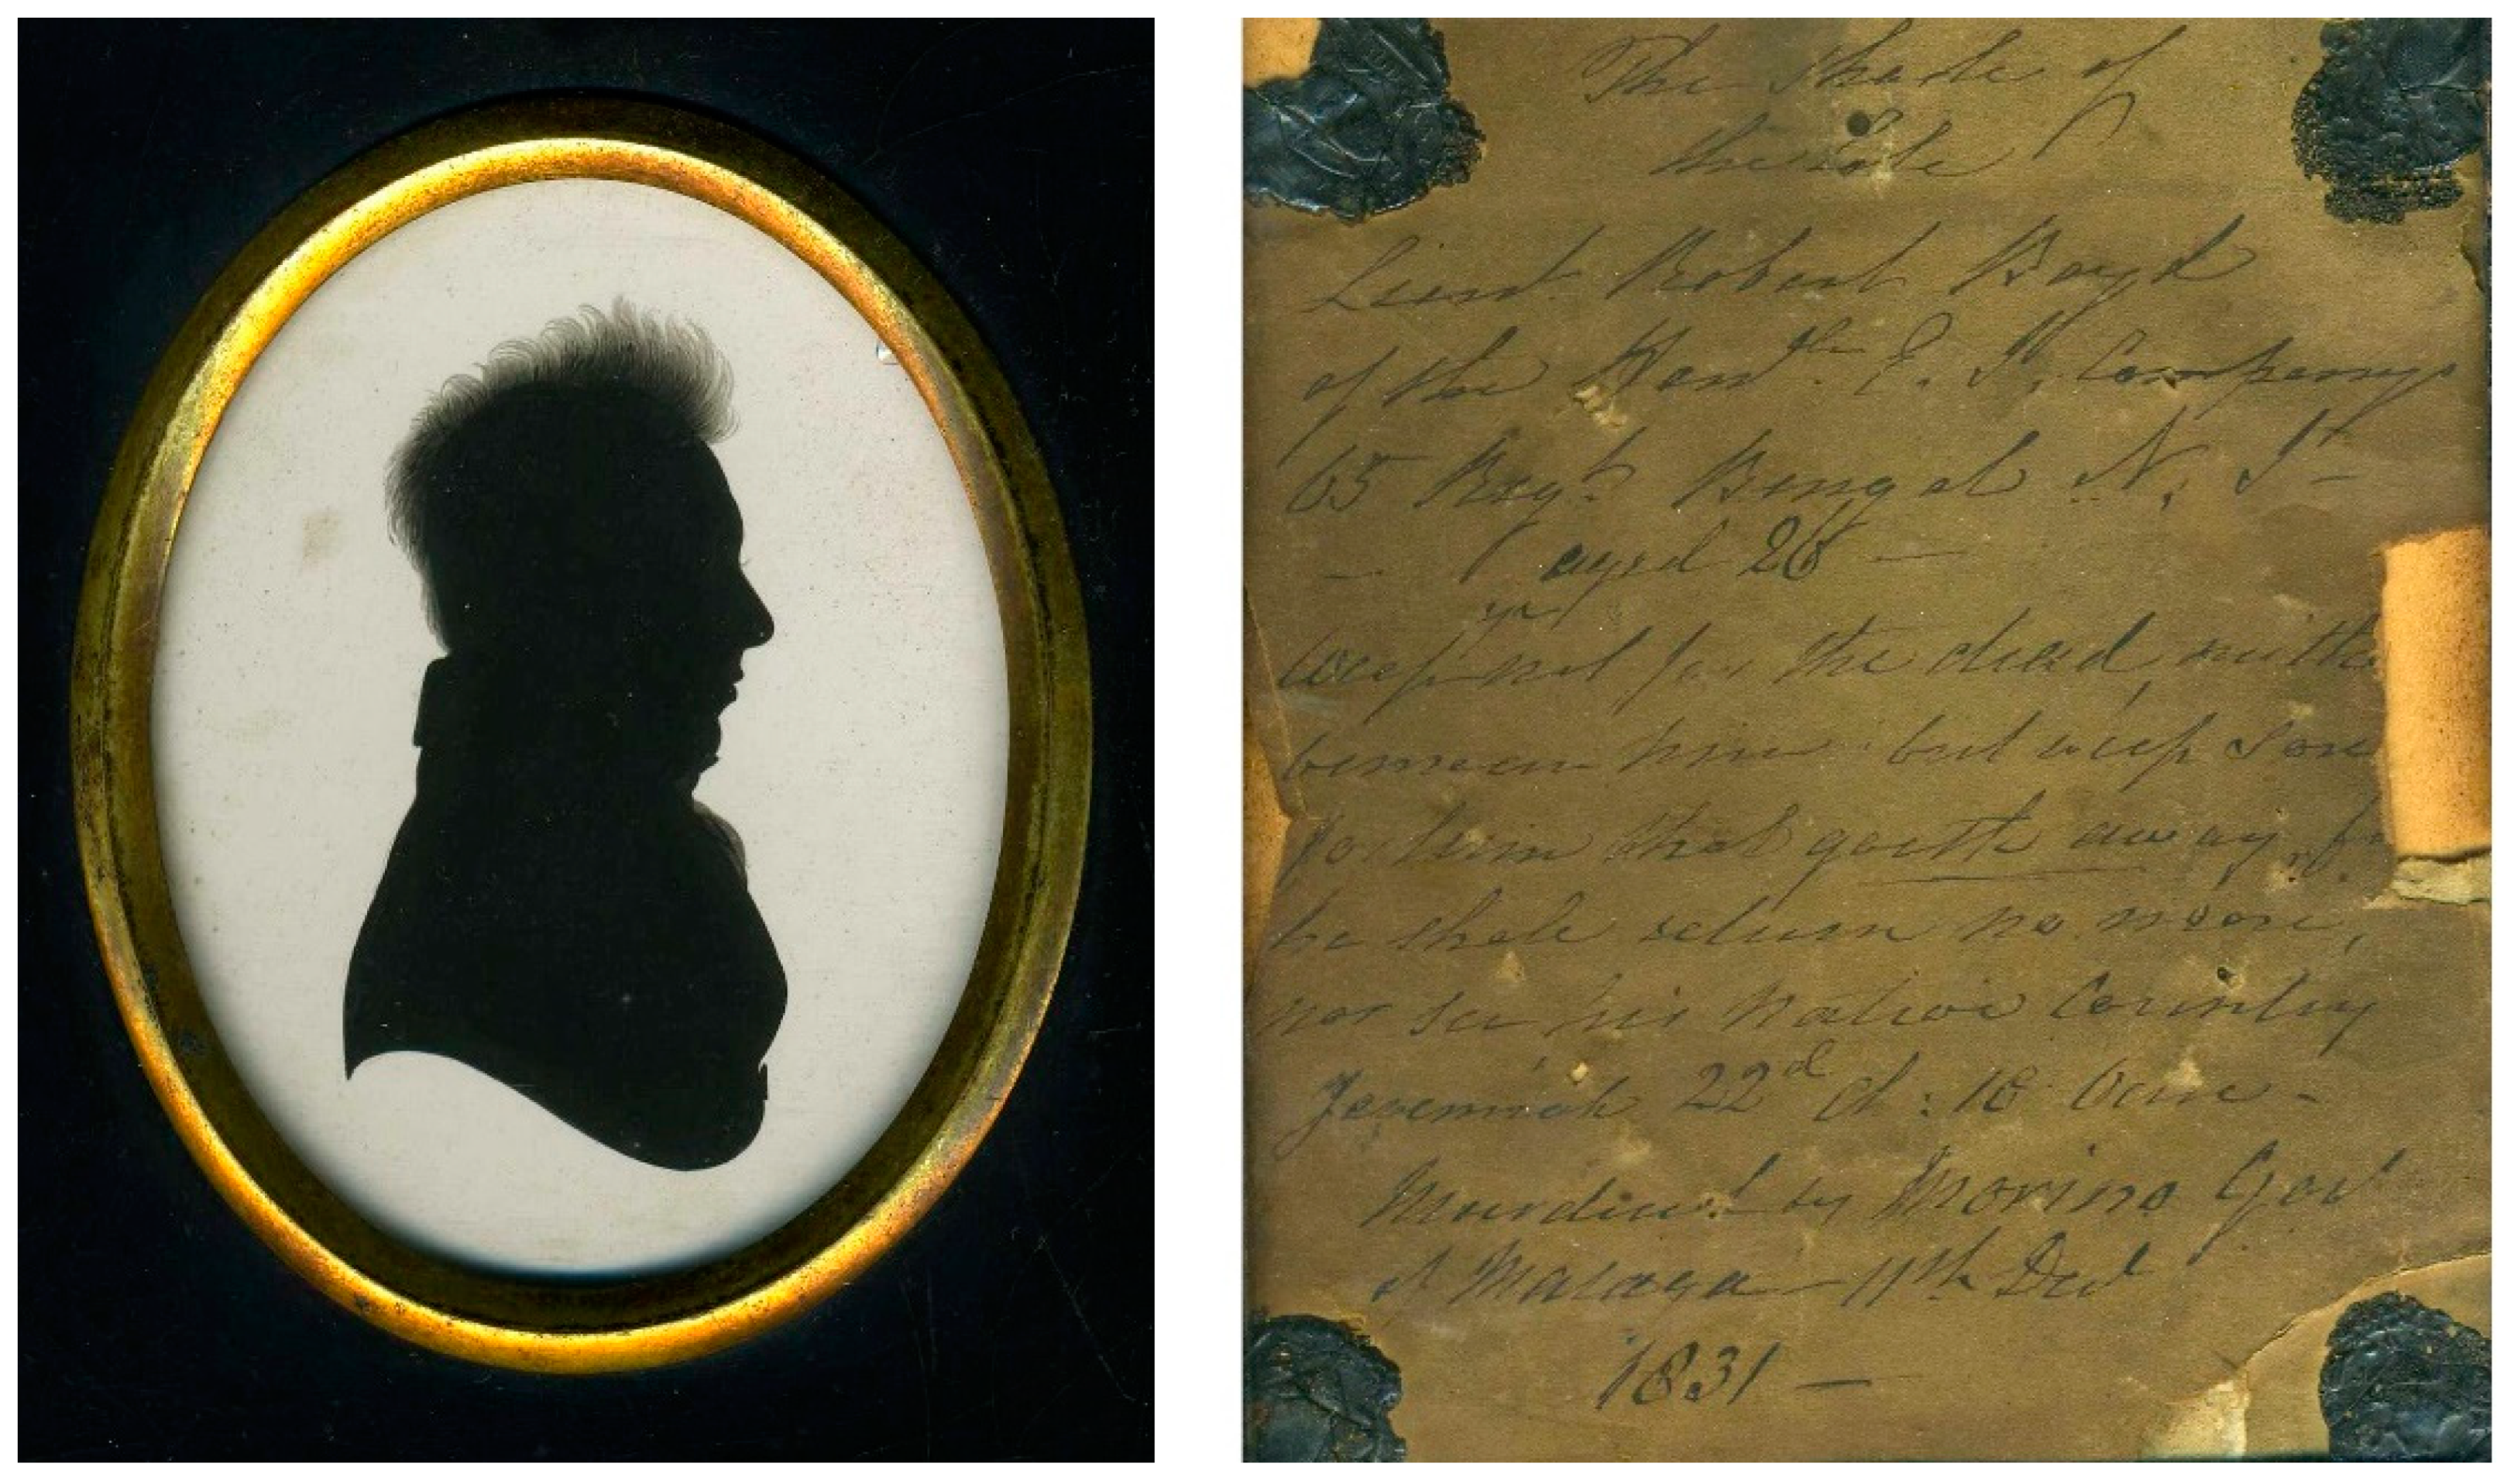 The Shade of
the late
Lieut. Robert Boyd
of the Honble E. I. Companys
65 Regt. Bengal N. I.
— aged 26 —
yrs
Weep not for the dead, neithe
bemoan him: but weep sore
fo him that goeth away, fo
he shall return no more,
nor see his native Country
Jeremiah 22d Ch: 10 Verse -
Murdered by Morino Gov
of Malaga 11th Decr
1831 —